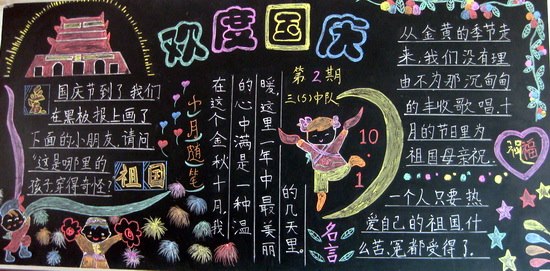 欢度国庆
爱
国庆节到了我们
在黑板报上画了
下面的小朋友,请问
“这是哪里的
孩子穿得奇怪?
祖国
十月随笔
在这个金秋十月,我
的心中满是一种温
暖,这里一年中最美丽
的几天里。
第2期
三(5)中队
10.1
名言
从金黄的季节走
来,我们没有理
由不为那沉甸甸
的丰收歌唱.十
月的节日里为
祖国母亲祝.
祝福
一个人只要热
爱自己的祖国.什
么苦,冤都受得了.